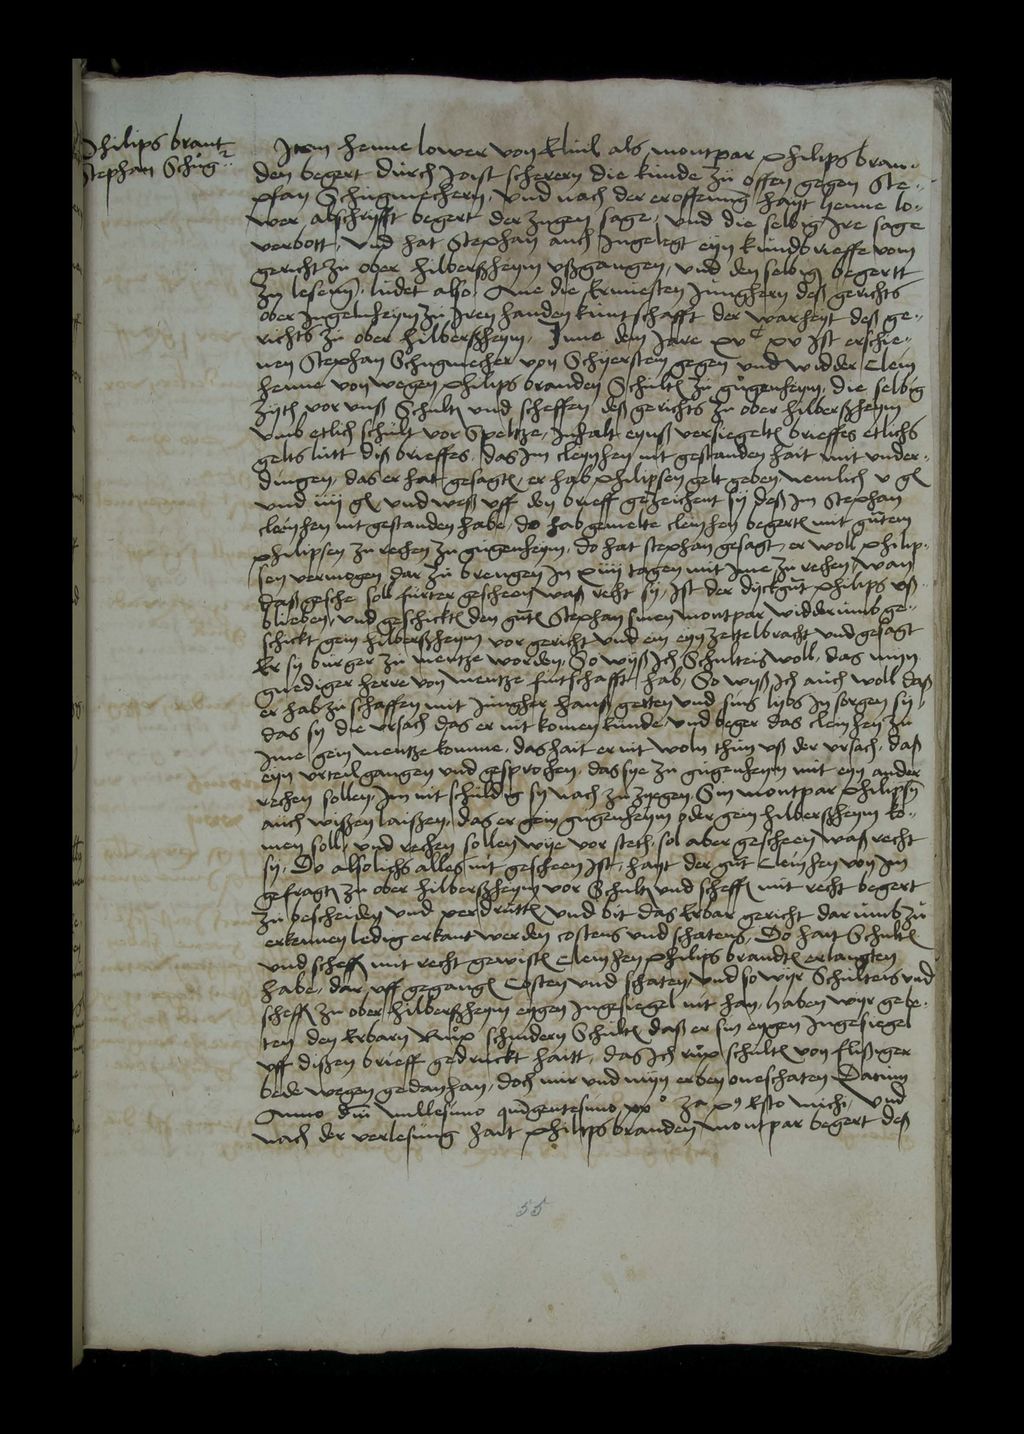 Philips brant
Stephan Schug
Item Henne lower von Elvil als montpar Philips bran-
den begert durch Joist scherern die kunde zu offen gegen Ste-
phan Schugmechern, und nach der eroffenung hayt Henne lo-
wer abschrifft begert der zugen sage, und die selbig ire sage
verbott, und hat Stephan auch ingelegt eyn kundbrieffe vom
gericht zu ober hilberßheym ußgangen, und den selbig begertt
zu lesenn, ludet also. Ane die ernvesten junghern deß gerichts
ober Ingelnheym zu iren handen kuntschafft der warheyt deß ge-
richts zu ober hilberßheym, Inne dem jare xvc xv ist erschie-
nen Stephan Schugmecher von Schyerstein gegen und widder Clein
henne von wegen Philips branden Schult zu gugenheym, die selbig
zyt vor unß Schult und scheffen deß gerichts zu ober hilberßheym
umb etlich schult vor Speltze, inhalt eynß versiegelt brieffes etlichs
gelts lutt diß brieffes, das im cleinhen nit gestanden hait mit under-
dingen, das er hat gesagt, er hab Philipsen gelt geben nemlich v gl
und iiij gl und weß uff den brieff gezeichent sy deß im Stephan
cleinhen nit gestanden habe, do hab gemelte cleinhen begert mit gutem
Philipsen zu rechen zu gugenheym, do hat stephan gesagt, er woll Philip-
sen vermogen dar zu brengen in xiiij tagen mit ime zu rechen, wan
daß gesche sol furter gescheen waß recht sy, ist der dickgut Philips uß
blieben, und geschickt den gut Stephan sinen montpar widderumb ge-
schickt gein hilberßheym vor gericht und ein eyn zettel bracht und gesagt
Er sy burger zu mentze worden, So wyß ich Schulteis woll, das myn
gnediger herre von mentze fintschafft hab, So wyß ich auch woll daß
er hab zu schaffen mit jungher hanß getten und sins lybs in sorgen sy,
das sy die ursach das er nit komen kunde und beger das cleinhen zu
ime gein mentze komme, das hait er nit woln thun uß der ursach, daß
eyn urteil gangen und gesprochen, das sye zu gugenheym mit eyn ander
rechen sollen, im nit schuldig sy nach zu zyegen, Sin montpar Philipsen
auch wißen laißen, das er gein gugenheym oder gein hilberßheym ko-
men soll, und rechen sollen wye vor stech, sol aber gescheen waß recht
sy, Do absolichs alles nit gescheen ist, hayt der gut Cleinhen von im
gefragt zu ober hilberßheym vor Schult und scheff mit recht begert
zu bescheiden und und bit das Erbar gericht darumb zu
erkennen ledig erkant werden costens und schatens, Do hait Schult
und scheff mit recht gewist Cleinhen Philips brandt erlangten
habe, dar uff gegang Costen und schaten, und so wyr Schulteis und
scheff zu ober hilberßheym eygen ingesiegel nit han, haben wyr gebe-
ten den Erbarn Rupp schnidern Schult daß er sin eygen ingesiegel
uff dißen brieff gedruckt haitt, das ich rupp schult von flißiger
bede wegen gedan han, doch mir und myn erben one schaten Datum
Anno dni millesimo quingentesimo xxo Esto michi, und
nach der verlesung hait Philips branden montpar begert deß
55